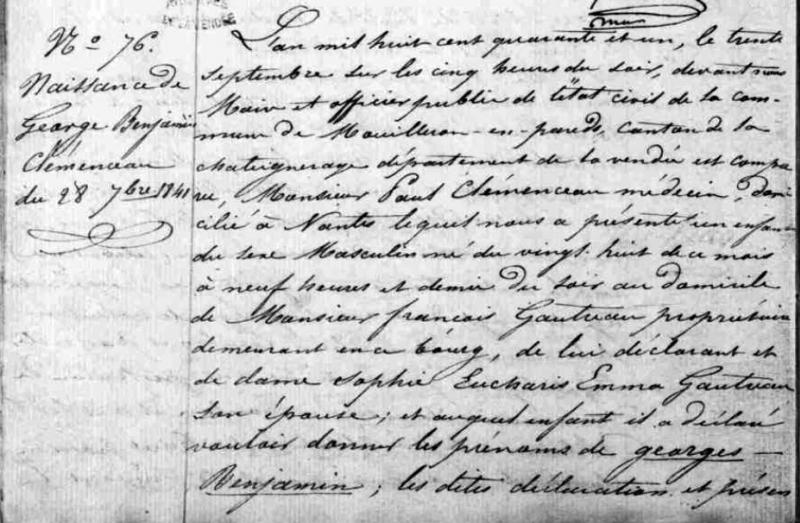 N° 76.
Naissance de
George Benjamin
Clémenceau
du 28 7bre 1841
L'an mil huit cent quarante et un, le trente
septembre sur les cinq heures du soir, devant nous
Maire et officier public de l'état civil de la com-
mune de Mouilleron-en-pareds, canton de la
chateigneraye département de la vendée est compa
ru, Monsieur Paul Clémenceau médecin, domi
cilié à Nantes lequel nous a présenté un enfant
du sexe Masculin né du vingt huit de ce mois
à neuf heures et demie du soir au domicile
de Monsieur françois Gautreau propriétaire
demeurant en ce bourg, de lui déclarant et
de dame Sophie Eucharis Emma Gautreau
son épouse; et auquel enfant il a déclaré
vouloir donner les prénoms de georges -
Benjamin; les dites déclaration et présen